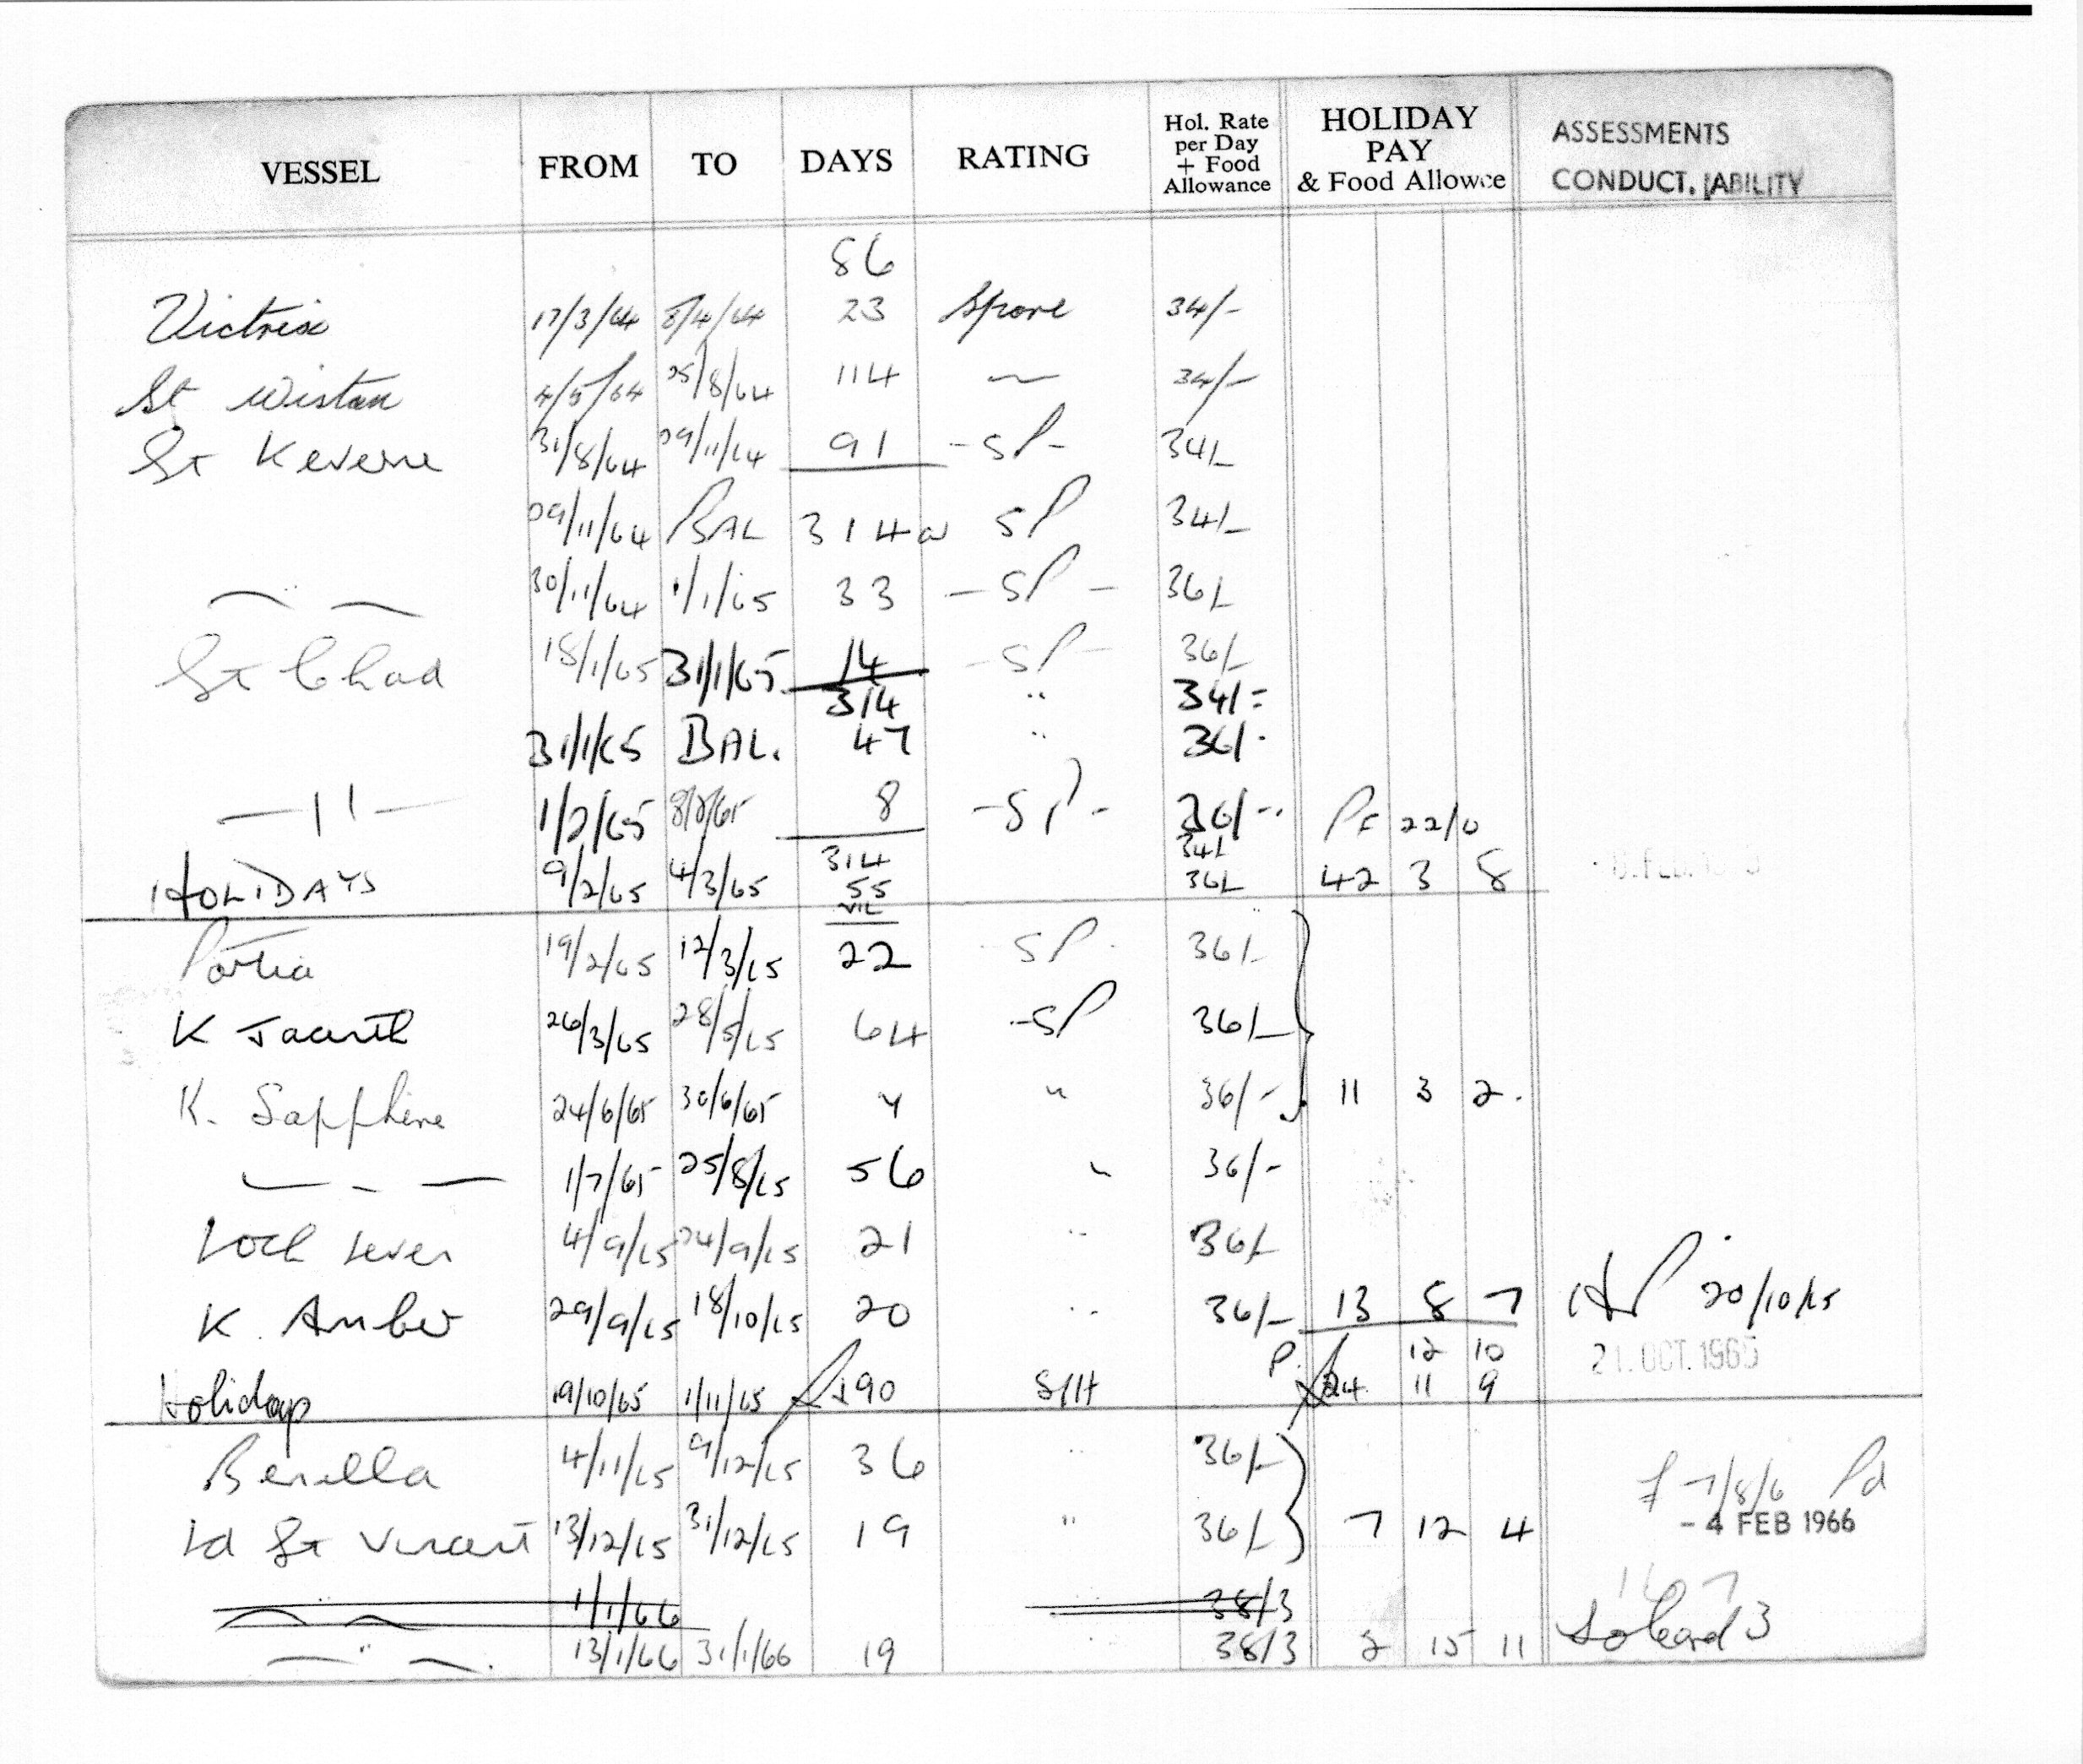 VESSEL FROM TO DAYS RATING Hol. Rate per Day + Food Allowance HOLIDAY PAY & Food Allowce ASSESSMENTS CONDUCT. ABILITY
86
Victrix 17/3/64 8/4/64 23 Spare 34/-
St Wistan 4/5/64 25/8/64 114 34/-
St Keverne 31/8/64 29/11/64 91 -SP- 34/-
29/11/64 BAL 314 SP 34/-
30/11/64 1/1/65 33 -SP- 36/-
St Chad 18/1/65 31/1/65 14 -SP- 36/-
314 " 34/-
31/1/65 BAL. 47 " 36/-
—11— 1/2/65 8/2/65 8 -SP- 36/- 22/0
314 34/-
HOLIDAYS 9/2/65 4/3/65 55 36/- 42 3 8
NIL
Portia 19/2/65 12/3/65 22 SP 36/-
K Jacinth 26/3/65 28/5/65 64 -SP 36/-
K. Sapphire 24/6/65 30/6/65 7 " 36/- 11 3 2.
1/7/65 25/8/65 56 " 36/-
Loch Leven 4/9/65 24/9/65 21 " 36/-
K. Amber 29/9/65 18/10/65 20 " 36/- 13 8 7 HP 20/10/65
P. 12 10 21. OCT. 1965
Holidays 19/10/65 1/11/65 190 S/H 24 11 9
Berella 4/11/65 9/12/65 36 " 36/- £7/8/6 Pd
Ld St Vincent 13/12/65 31/12/65 19 " 36/- 7 12 4 - 4 FEB 1966
1/1/66 38/3 167
" 13/1/66 31/1/66 19 38/3 2 15 11 To Card 3